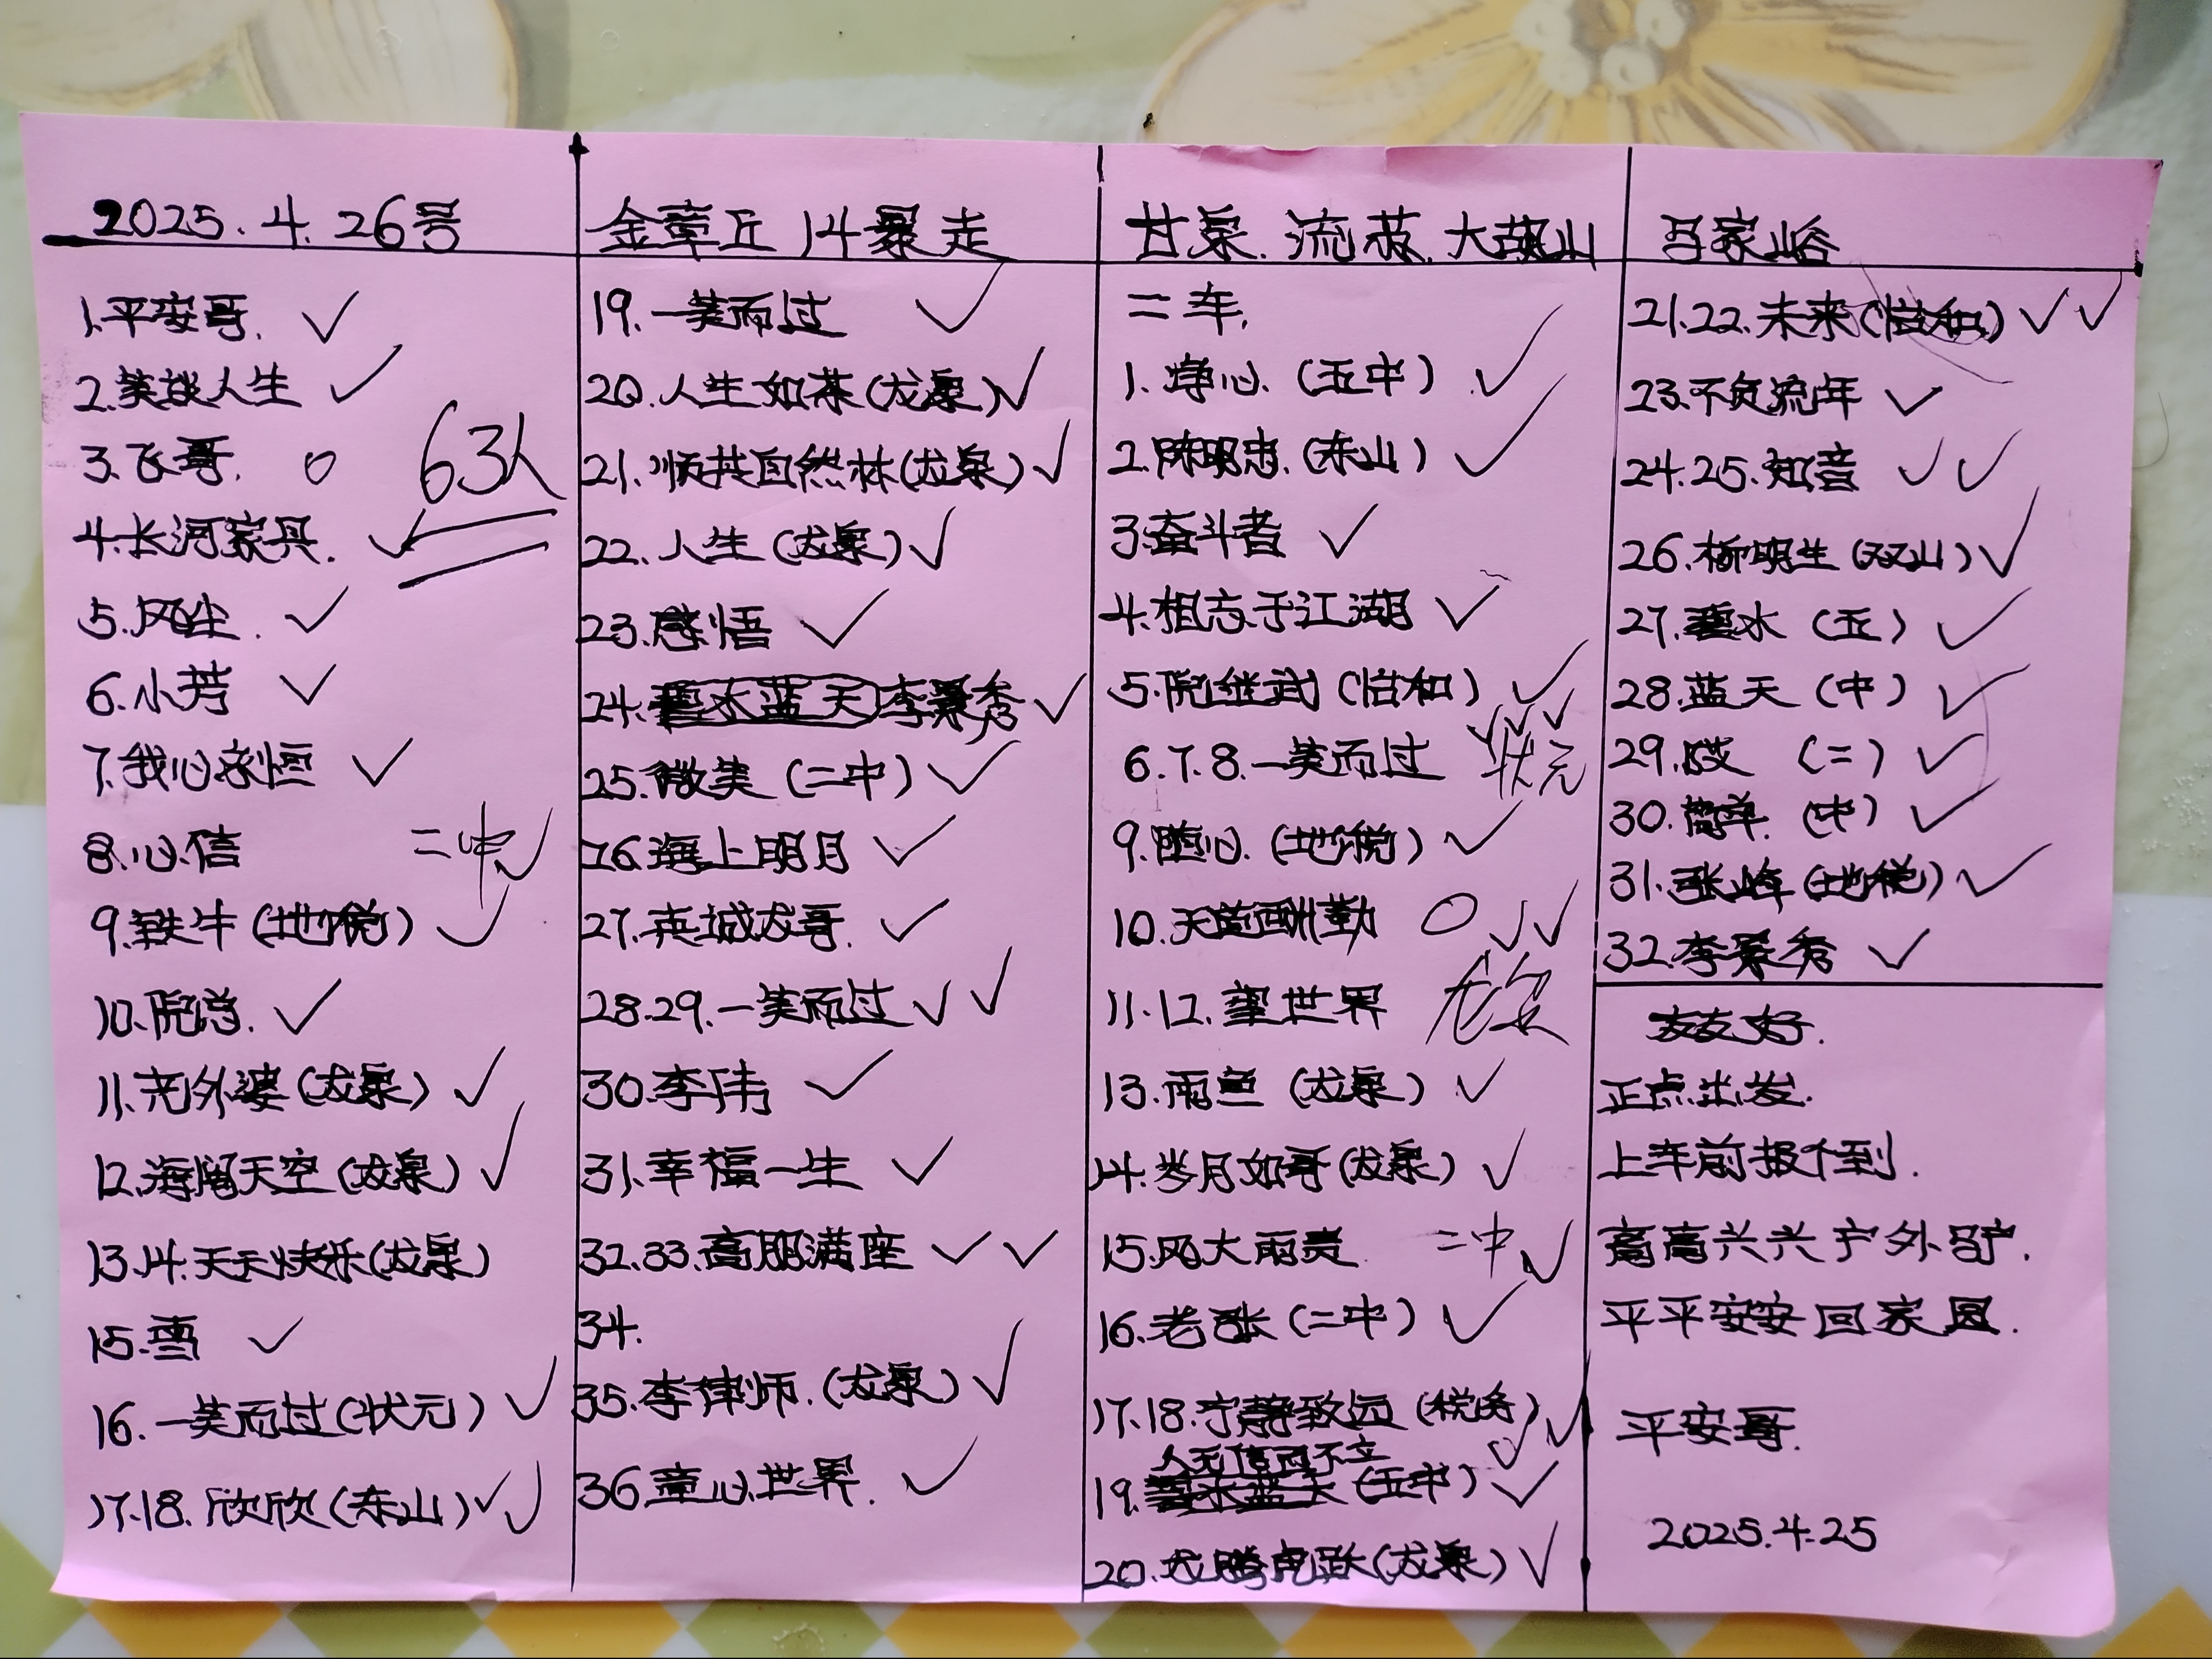 2025.4.26号
1.平安哥. ✓
2.笑谈人生 ✓
3.飞哥. O
63人
4.长河家丹. ✓
5.风尘. ✓
6.小芳 ✓
7.我心永恒 ✓
8.心信 二中 ✓
9.铁牛(地税) ✓
10.院总. ✓
11.老外婆(龙泉) ✓
12.海阔天空(龙泉) ✓
13.14.天天快乐(龙泉)
15.雪 ✓
16.一笑而过(状元) ✓
17.18.欣欣(东山) ✓✓
金章丘14暴走
19.一笑而过 ✓
20.人生如茶(龙泉) ✓
21.顺其自然林(龙泉) ✓
22.人生(龙泉) ✓
23.感悟 ✓
24.碧水蓝天李景秀 ✓
25.微笑(二中) ✓
26.海上明月 ✓
27.英城龙哥. ✓
28.29.一笑而过 ✓✓
30.李伟 ✓
31.幸福一生 ✓
32.33.高朋满座 ✓✓
34.
35.李律师.(龙泉) ✓
36.童心世界. ✓
甘泉.流苏.大胡山
二车.
1.净心.(五中) ✓
2.陈明忠.(东山) ✓
3.奋斗者 ✓
4.相忘于江湖 ✓
5.院继武(怡和) ✓
6.7.8.一笑而过 状元 ✓✓✓
9.随心.(地税) ✓
10.天道酬勤 O
11.12.玺世界 ✓✓
13.雨鱼(龙泉) ✓
14.岁月如哥(龙泉) ✓
15.风大雨贵 二中 ✓
16.老张(二中) ✓
17.18.宁静致远(税务) ✓✓
人无信而不立 ✓
19.碧水蓝天(五中) ✓
20.龙腾虎跃(龙泉) ✓
吕家峪
21.22.未来(怡和) ✓✓
23.不负流年 ✓
24.25.知音 ✓✓
26.柳明生(双山) ✓
27.碧水(五) ✓
28.蓝天(中) ✓
29. (二) ✓
30.简单.(中) ✓
31.张峰(地税) ✓
32.李景秀 ✓
友友好.
正点出发.
上车前报个到.
高高兴兴户外驴.
平平安安回家园.
平安哥.
2025.4.25